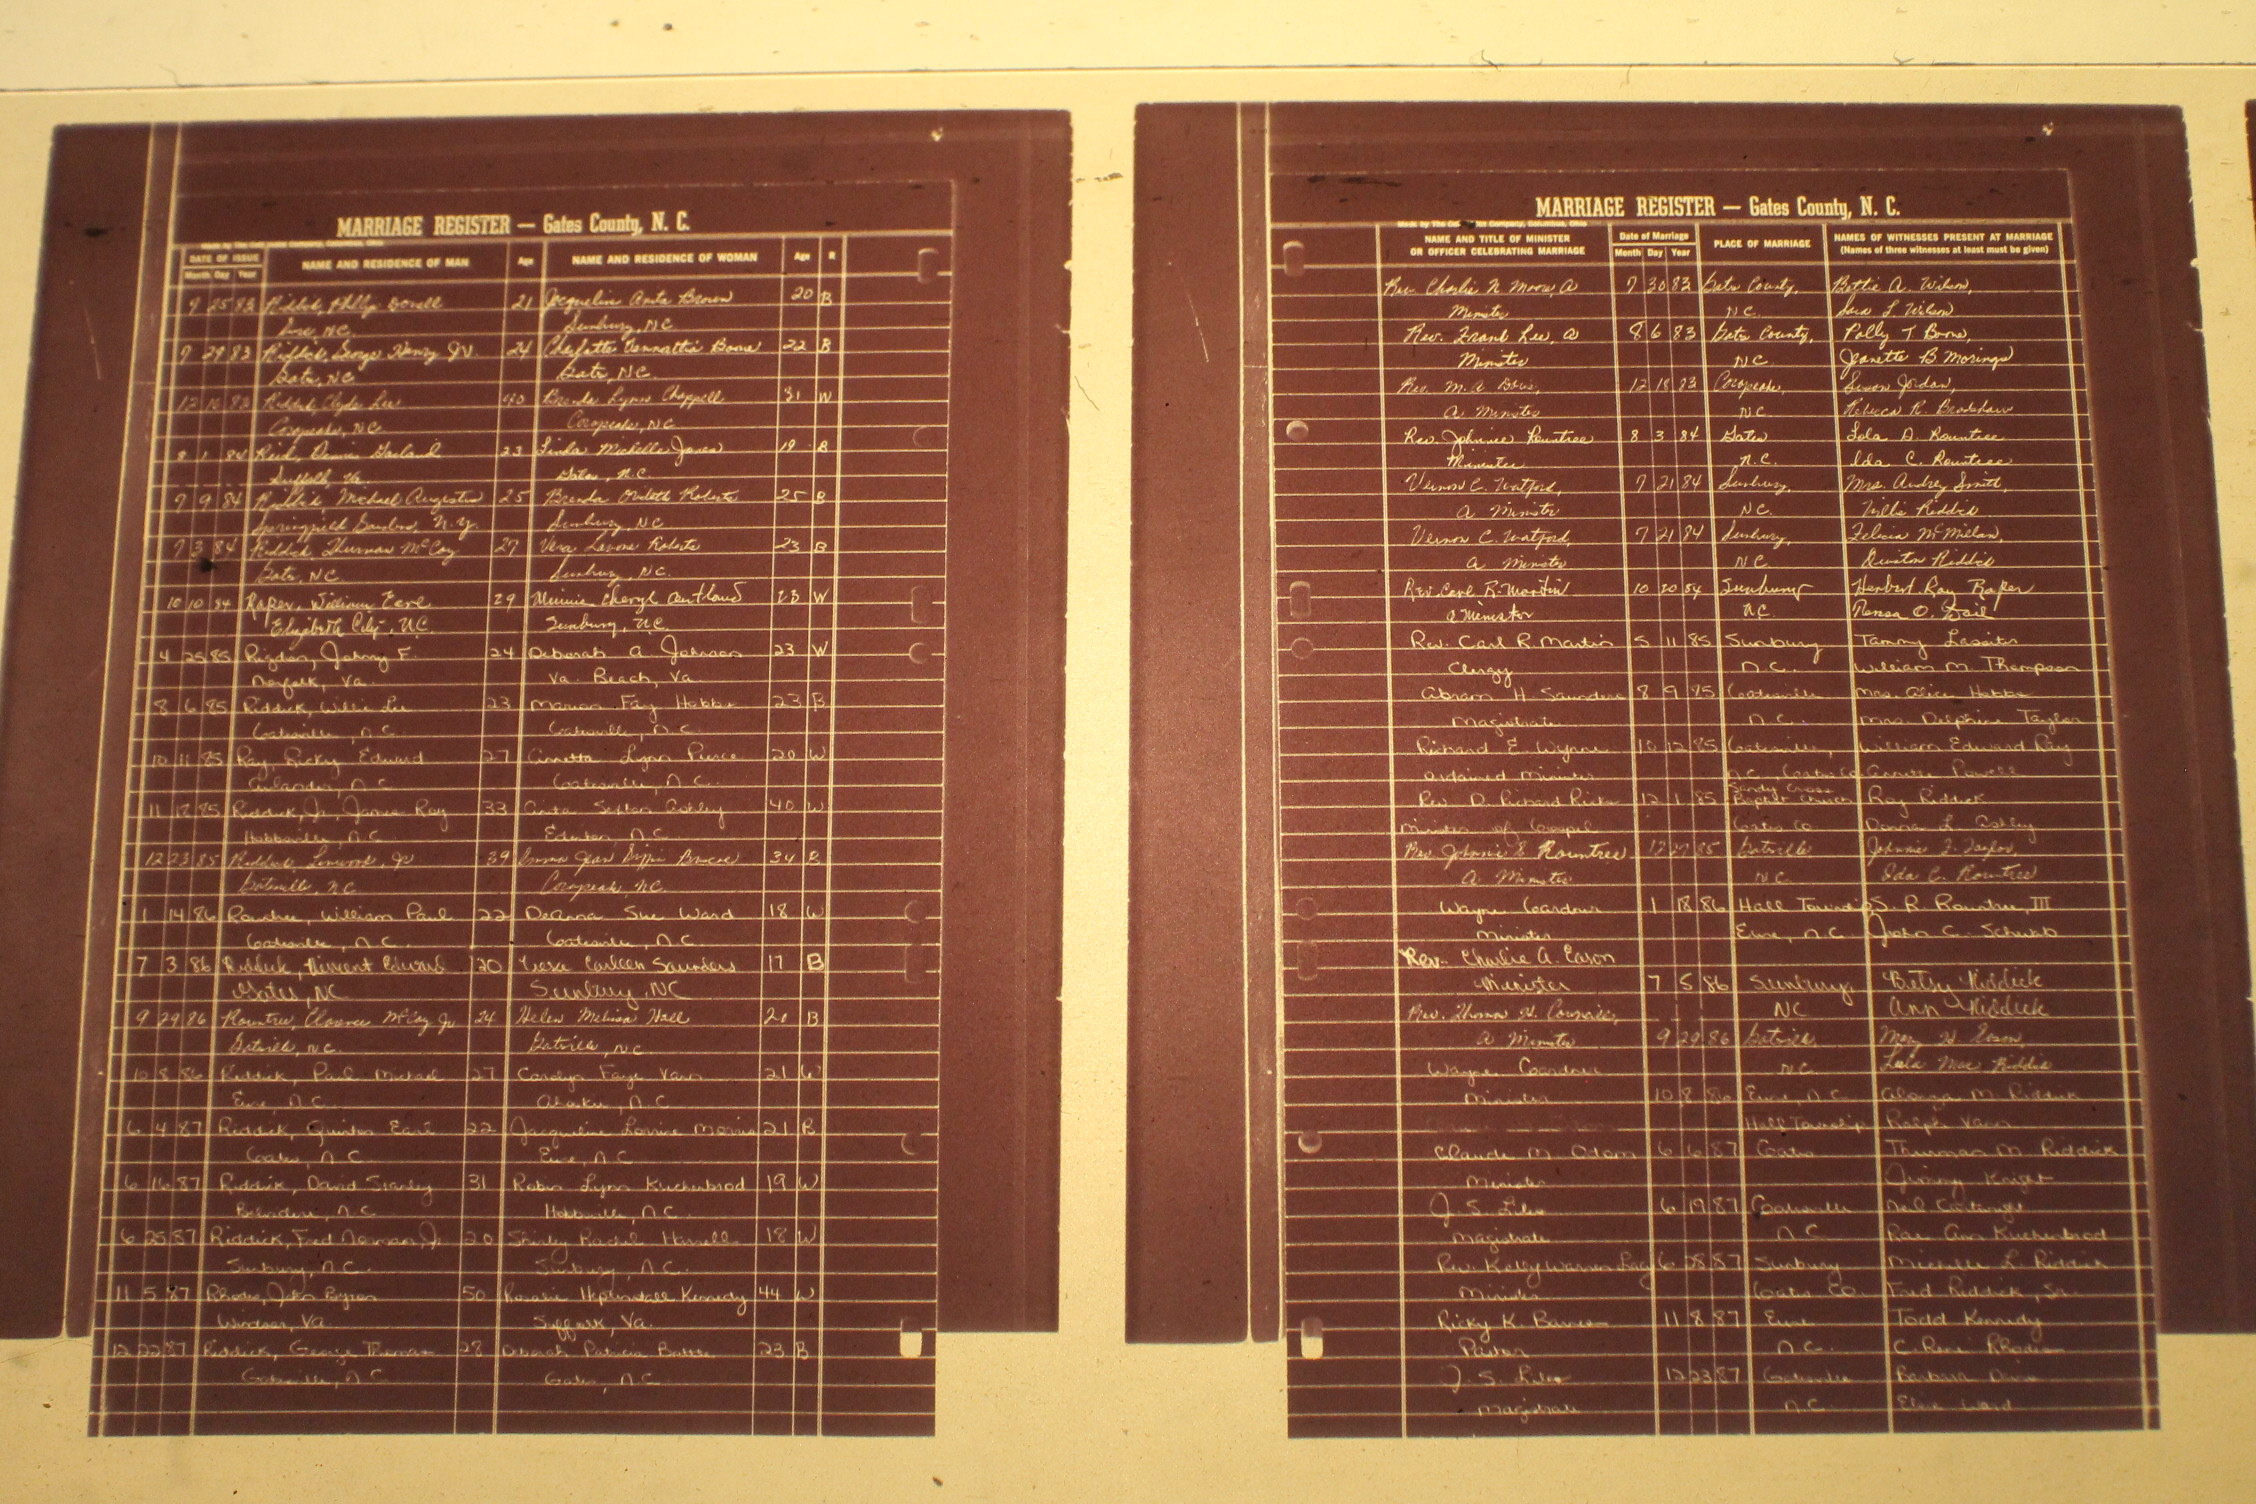 MARRIAGE REGISTER — Gates County, N. C.
DATE OF ISSUE
Month Day Year
NAME AND RESIDENCE OF MAN
Age
NAME AND RESIDENCE OF WOMAN
Age
R
7 25 83 Riddick, Phillip Donell 21 Jacqueline Anita Brown 20 B
Eure, NC Sunbury, NC
7 29 83 Riddick, George Henry Jr. 24 Boone 22 B
Gates, NC Gates, NC
12 16 83 Riddick, Clyde Lee 40 Brenda Lynn Chappell 31 W
Corapeake, NC Corapeake, NC
8 1 84 Reid, Garland 23 Linda Michelle Jones 19 B
Suffolk, Va Gates, N.C.
7 9 84 Riddick Michael 25 Brenda Roberts 25 B
Springfield N.Y. Sunbury, NC
7 3 84 Riddick, Thurman McCoy 27 Vera Lavone Roberts 23 B
Gates, NC Sunbury, NC.
10 10 84 Raper, William Earl 29 Minnie Cheryl Outland 23 W
Elizabeth City, NC. Sunbury, NC.
4 25 85 Rigdon, Johnny F. 24 Deborah A Johnson 23 W
Norfolk, Va. Va. Beach, Va.
8 6 85 Riddick, Willie Lee 23 Marion Fay Hobbs 23 B
Gatesville, N.C. Gatesville, N.C.
10 11 85 Ray, Ricky Edward 27 Annetta Lynn Pierce 20 W
N.C. Gatesville, N.C.
11 18 85 Riddick, Jr., James Ray 33 Ashley 40 W
Hobbsville, N.C. Edenton, N.C.
12 23 85 Riddick, Linwood, Jr 39 Emma Jean 34 B
Gatesville, NC Corapeake, NC.
1 14 86 Rountree, William Paul 22 Deanna Sue Ward 18 W
Gatesville, N.C. Gatesville, N.C.
7 3 86 Riddick, Vincent Edward 20 Carleen Saunders 17 B
Gates, NC Sunbury, NC
9 29 86 Rountree, Clarence McCoy Jr 24 Helen Melissa Hall 20 B
Gatesville, NC. Gatesville, NC
10 8 86 Riddick, Paul Michael 27 Carolyn Faye Vann 21 W
Eure, N.C. Ahoskie, N.C.
6 4 87 Riddick, Quinton Earl 22 Jacqueline Lorrine Morris 21 B
Gates, N.C. Eure, N.C.
6 16 87 Riddick, David Stanley 31 Robin Lynn Kuchenbrod 19 W
Belvidere, N.C. Hobbsville, N.C.
6 25 87 Riddick, Fred Norman, Jr. 20 Shirley Rachel Harrell 18 W
Sunbury, N.C. Sunbury, N.C.
11 5 87 Rhodes, John Byron 50 Rosalie Heptinstall Kennedy 44 W
Windsor, Va. Suffolk, Va.
12 22 87 Riddick, George Thomas 28 Deborah Patricia 23 B
Gatesville, N.C. Gates, N.C.
MARRIAGE REGISTER — Gates County, N. C.
NAME AND TITLE OF MINISTER
OR OFFICER CELEBRATING MARRIAGE
Date of Marriage
Month Day Year
PLACE OF MARRIAGE
NAMES OF WITNESSES PRESENT AT MARRIAGE
(Names of three witnesses at least must be given)
Rev. Charlie N. Moore, A 7 30 83 Gates County, Bettie A. Wilson,
Minister NC. Sara L Wilson
Rev. Frank Lee, A 8 6 83 Gates County, Polly T Boone,
Minister NC Jeanette B Morings
Rev. M. A. Davis, 12 18 83 Corapeake, Susan Jordan,
A Minister NC Rebecca R. Bradshaw
Rev. Johnnie Rountree 8 3 84 Gates Lola D. Rountree
Minister N.C. Ida C. Rountree
Vernon C. Watford, 7 21 84 Sunbury, Mrs. Audrey Smith,
A Minister NC. Willie Riddick
Vernon C. Watford, 7 21 84 Sunbury, Felicia McMillan,
A Minister NC. Riddick
Rev. Carl R. Martin 10 20 84 Sunbury Herbert Ray Raper
A Minister NC. O. Dail
Rev. Carl R. Martin 5 11 85 Sunbury Tammy Lassiter
Clergy N.C. William M. Thompson
Abram H. Saunders 8 9 85 Gatesville Mrs. Alice Hobbs
Magistrate N.C. Mrs. Delphine Taylor
Richard E. Wynne 10 12 85 Gatesville, William Edward Ray
Ordained Minister N.C., Gates Co Annette Powell
Rev. D. Richard 12 1 85 Sandy Cross Baptist Church Ray Riddick
Minister of Gospel Gates Co Donna L. Ashley
Rev Johnnie E Rountree 12 27 85 Gatesville Johnnie F. Taylor,
A Minister NC. Ida C. Rountree
Wayne Gardner 1 18 86 Hall Township S. R. Rountree, III
Minister Eure, N.C. John C. Schwab
Rev. Charlie A. Eason
Minister 7 5 86 Sunbury, Betsy Riddick
NC Ann Riddick
Rev. Thomas H. Council,
A Minister 9 29 86 Gatesville, Mary H. Eason,
NC. Lula Mae Riddick
Wayne Gardner
Minister 10 8 86 Eure, N.C. Alonza M. Riddick
Hall Township Ralph Vann
Claude M. Odom 6 6 87 Gates Thurman M. Riddick
Minister Jimmy Knight
J. S. Liles 6 19 87 Gatesville
Magistrate N.C. Rae Ann Kuchenbrod
Rev. Kelly Warren 6 28 87 Sunbury Michelle L. Riddick
Minister Gates Co. Fred Riddick, Sr.
Ricky K. Barnes 11 8 87 Eure Todd Kennedy
Pastor N.C. C. Rene Rhodes
J. S. Liles 12 23 87 Gatesville Barbara
Magistrate N.C. Elsie Ward